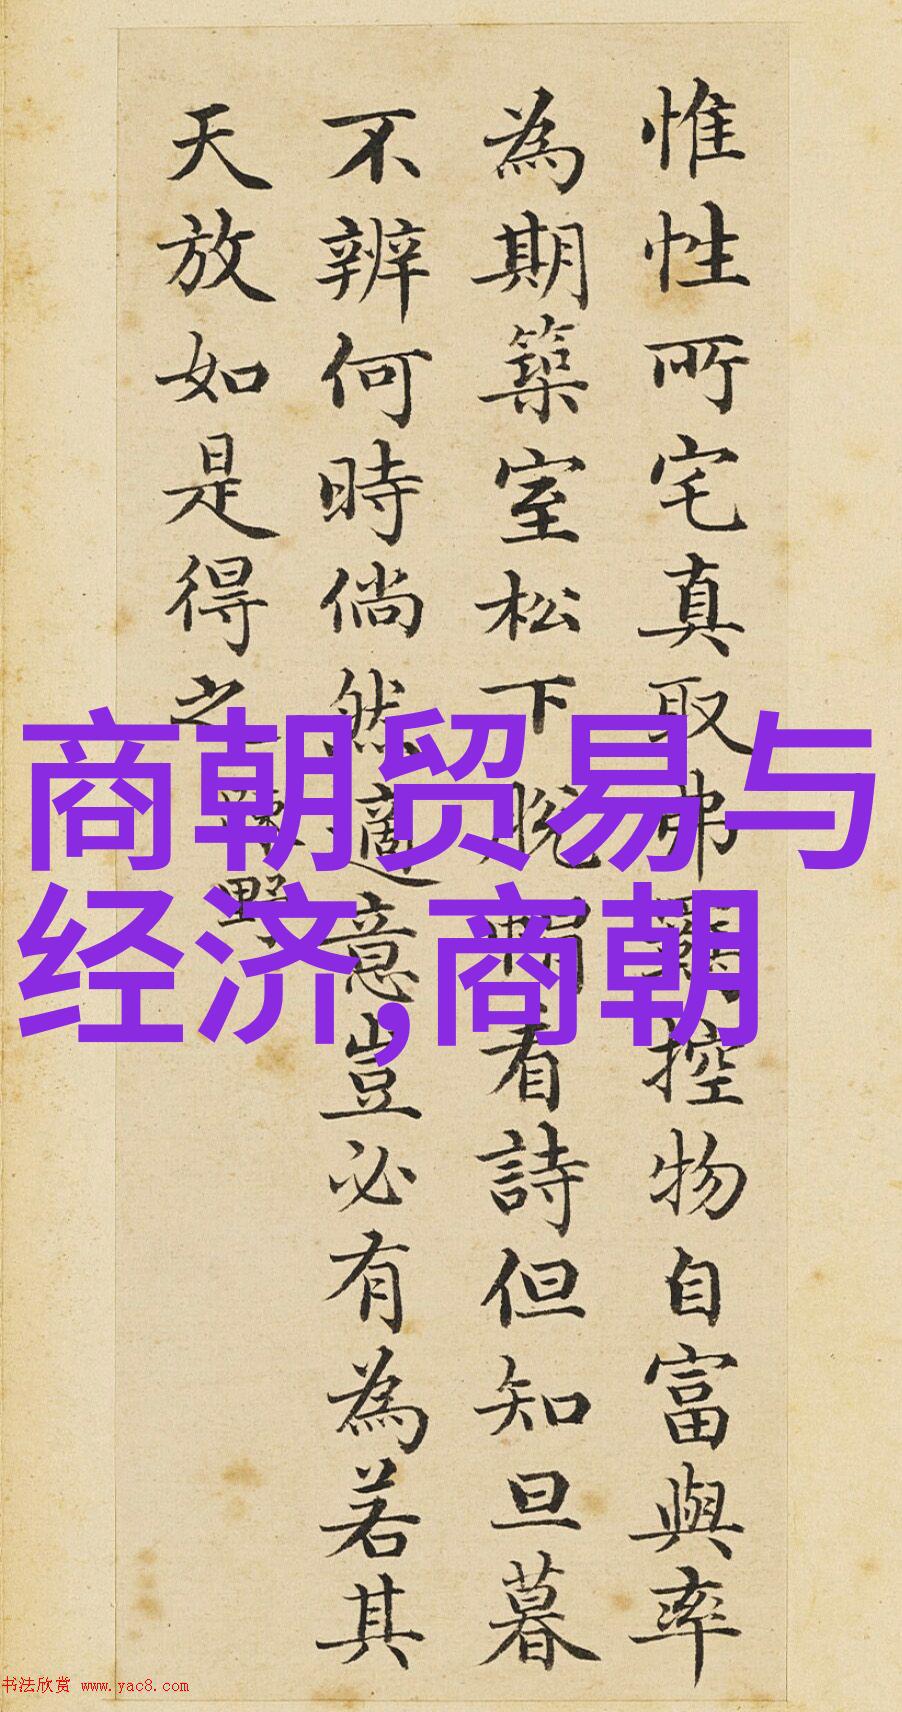 惟性所宅真取弗羁控物自富與率
為期築室松下脱帽看詩但知旦暮
不辨何時倘然適意豈必有為若其
天放如是得之
疎野
商朝贸易与
经济,商朝
书法欣赏 www.yac8.com